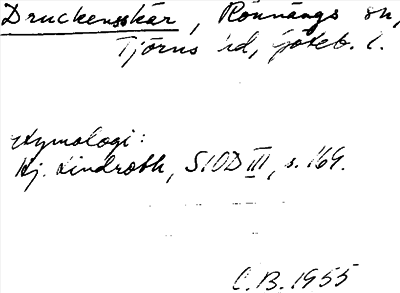 Druckensskär, Rönnängs sn,
Tjörns hd, Göteb. l.
Etymologi:
Hj. Lindroth, SIOD III, s. 169.
C.B. 1955